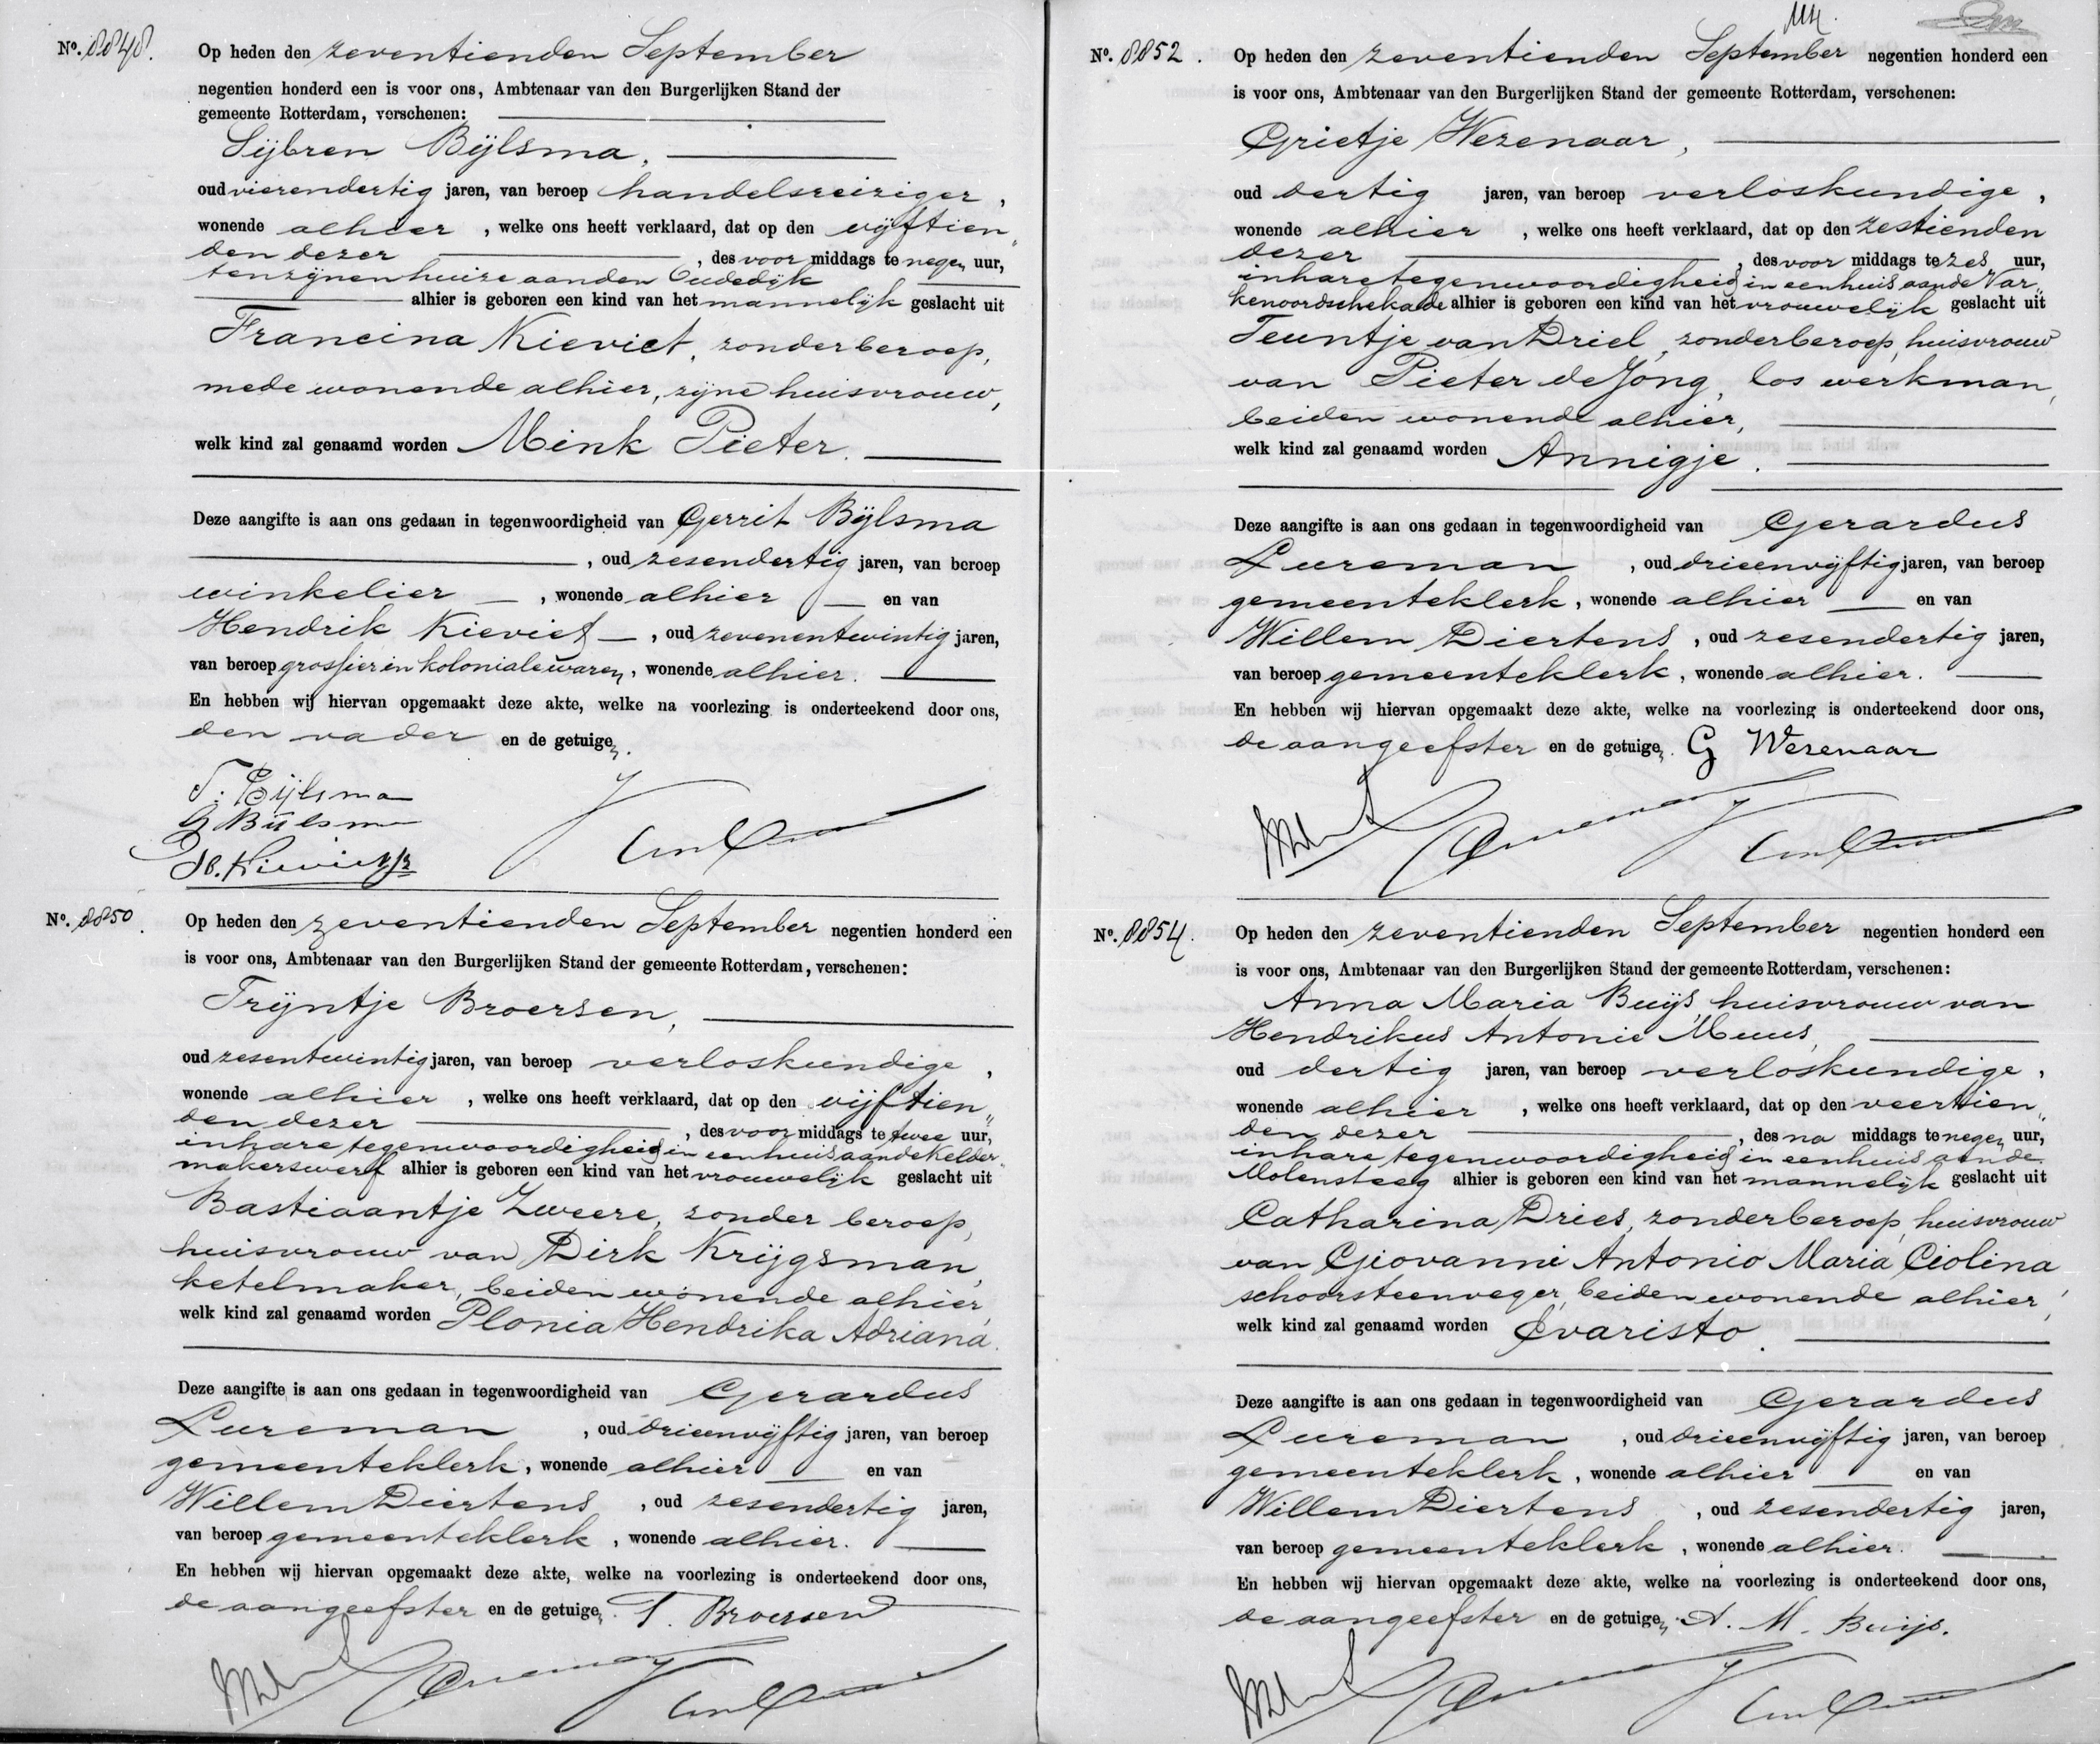 No. 8848.
Op heden den zeventienden September
negentien honderd een is voor ons, Ambtenaar van den Burgerlijken Stand der
gemeente Rotterdam, verschenen:
Sijbren Bijlsma,
oud vierendertig jaren, van beroep handelsreiziger,
wonende alhier, welke ons heeft verklaard, dat op den vijftien„
den dezer, des voor middags te negen uur,
ten zijnen huize aan den Oudedijk
alhier is geboren een kind van het mannelijk geslacht uit
Francina Kieviet, zonder beroep,
mede wonende alhier, zijne huisvrouw,
welk kind zal genaamd worden Mink Pieter.
Deze aangifte is aan ons gedaan in tegenwoordigheid van Gerrit Bijlsma
, oud zesendertig jaren, van beroep
winkelier, wonende alhier en van
Hendrik Kieviet, oud zevenentwintig jaren,
van beroep grossier in koloniale waren, wonende alhier.
En hebben wij hiervan opgemaakt deze akte, welke na voorlezing is onderteekend door ons,
den vader en de getuigen.
S. Bijlsma
G Bijlsma
H. Kieviet Jr
No. 8850.
Op heden den zeventienden September negentien honderd een
is voor ons, Ambtenaar van den Burgerlijken Stand der gemeente Rotterdam, verschenen:
Trijntje Broersen,
oud zesentwintig jaren, van beroep verloskundige,
wonende alhier, welke ons heeft verklaard, dat op den vijftien„
den dezer, des voor middags te twee uur,
in hare tegenwoordigheid in een huis aan de Kelder„
makerswerf alhier is geboren een kind van het vrouwelijk geslacht uit
Bastiaantje Zweere, zonder beroep,
huisvrouw van Dirk Krijgsman,
ketelmaker, beiden wonende alhier,
welk kind zal genaamd worden Plonia Hendrika Adriana.
Deze aangifte is aan ons gedaan in tegenwoordigheid van Gerardus
Lureman, oud drieenvijftig jaren, van beroep
gemeenteklerk, wonende alhier en van
Willem Diertens, oud zesendertig jaren,
van beroep gemeenteklerk, wonende alhier.
En hebben wij hiervan opgemaakt deze akte, welke na voorlezing is onderteekend door ons,
de aangeefster en de getuigen. T. Broersen
No. 8852.
Op heden den zeventienden September negentien honderd een
is voor ons, Ambtenaar van den Burgerlijken Stand der gemeente Rotterdam, verschenen:
Grietje Wezenaar,
oud dertig jaren, van beroep verloskundige,
wonende alhier, welke ons heeft verklaard, dat op den zestienden
dezer, des voor middags te zes uur,
in hare tegenwoordigheid in een huis aan de Var„
kenoordschekade alhier is geboren een kind van het vrouwelijk geslacht uit
Teuntje van Driel, zonder beroep, huisvrouw
van Pieter de Jong, los werkman,
beiden wonende alhier,
welk kind zal genaamd worden Annigje.
Deze aangifte is aan ons gedaan in tegenwoordigheid van Gerardus
Lureman, oud drieenvijftig jaren, van beroep
gemeenteklerk, wonende alhier en van
Willem Diertens, oud zesendertig jaren,
van beroep gemeenteklerk, wonende alhier.
En hebben wij hiervan opgemaakt deze akte, welke na voorlezing is onderteekend door ons,
de aangeefster en de getuigen. G Wezenaar
No. 8854.
Op heden den zeventienden September negentien honderd een
is voor ons, Ambtenaar van den Burgerlijken Stand der gemeente Rotterdam, verschenen:
Anna Maria Buijs, huisvrouw van
Hendrikus Antonie Muus,
oud dertig jaren, van beroep verloskundige,
wonende alhier, welke ons heeft verklaard, dat op den veertien„
den dezer, des na middags te negen uur,
in hare tegenwoordigheid in een huis aan de
Molensteeg alhier is geboren een kind van het mannelijk geslacht uit
Catharina Dries, zonder beroep, huisvrouw
van Giovanni Antonio Maria Ciolina
schoorsteenveger, beiden wonende alhier,
welk kind zal genaamd worden Evaristo.
Deze aangifte is aan ons gedaan in tegenwoordigheid van Gerardus
Lureman, oud drieenvijftig jaren, van beroep
gemeenteklerk, wonende alhier en van
Willem Diertens, oud zesendertig jaren,
van beroep gemeenteklerk, wonende alhier.
En hebben wij hiervan opgemaakt deze akte, welke na voorlezing is onderteekend door ons,
de aangeefster en de getuigen. A. M. Buijs.